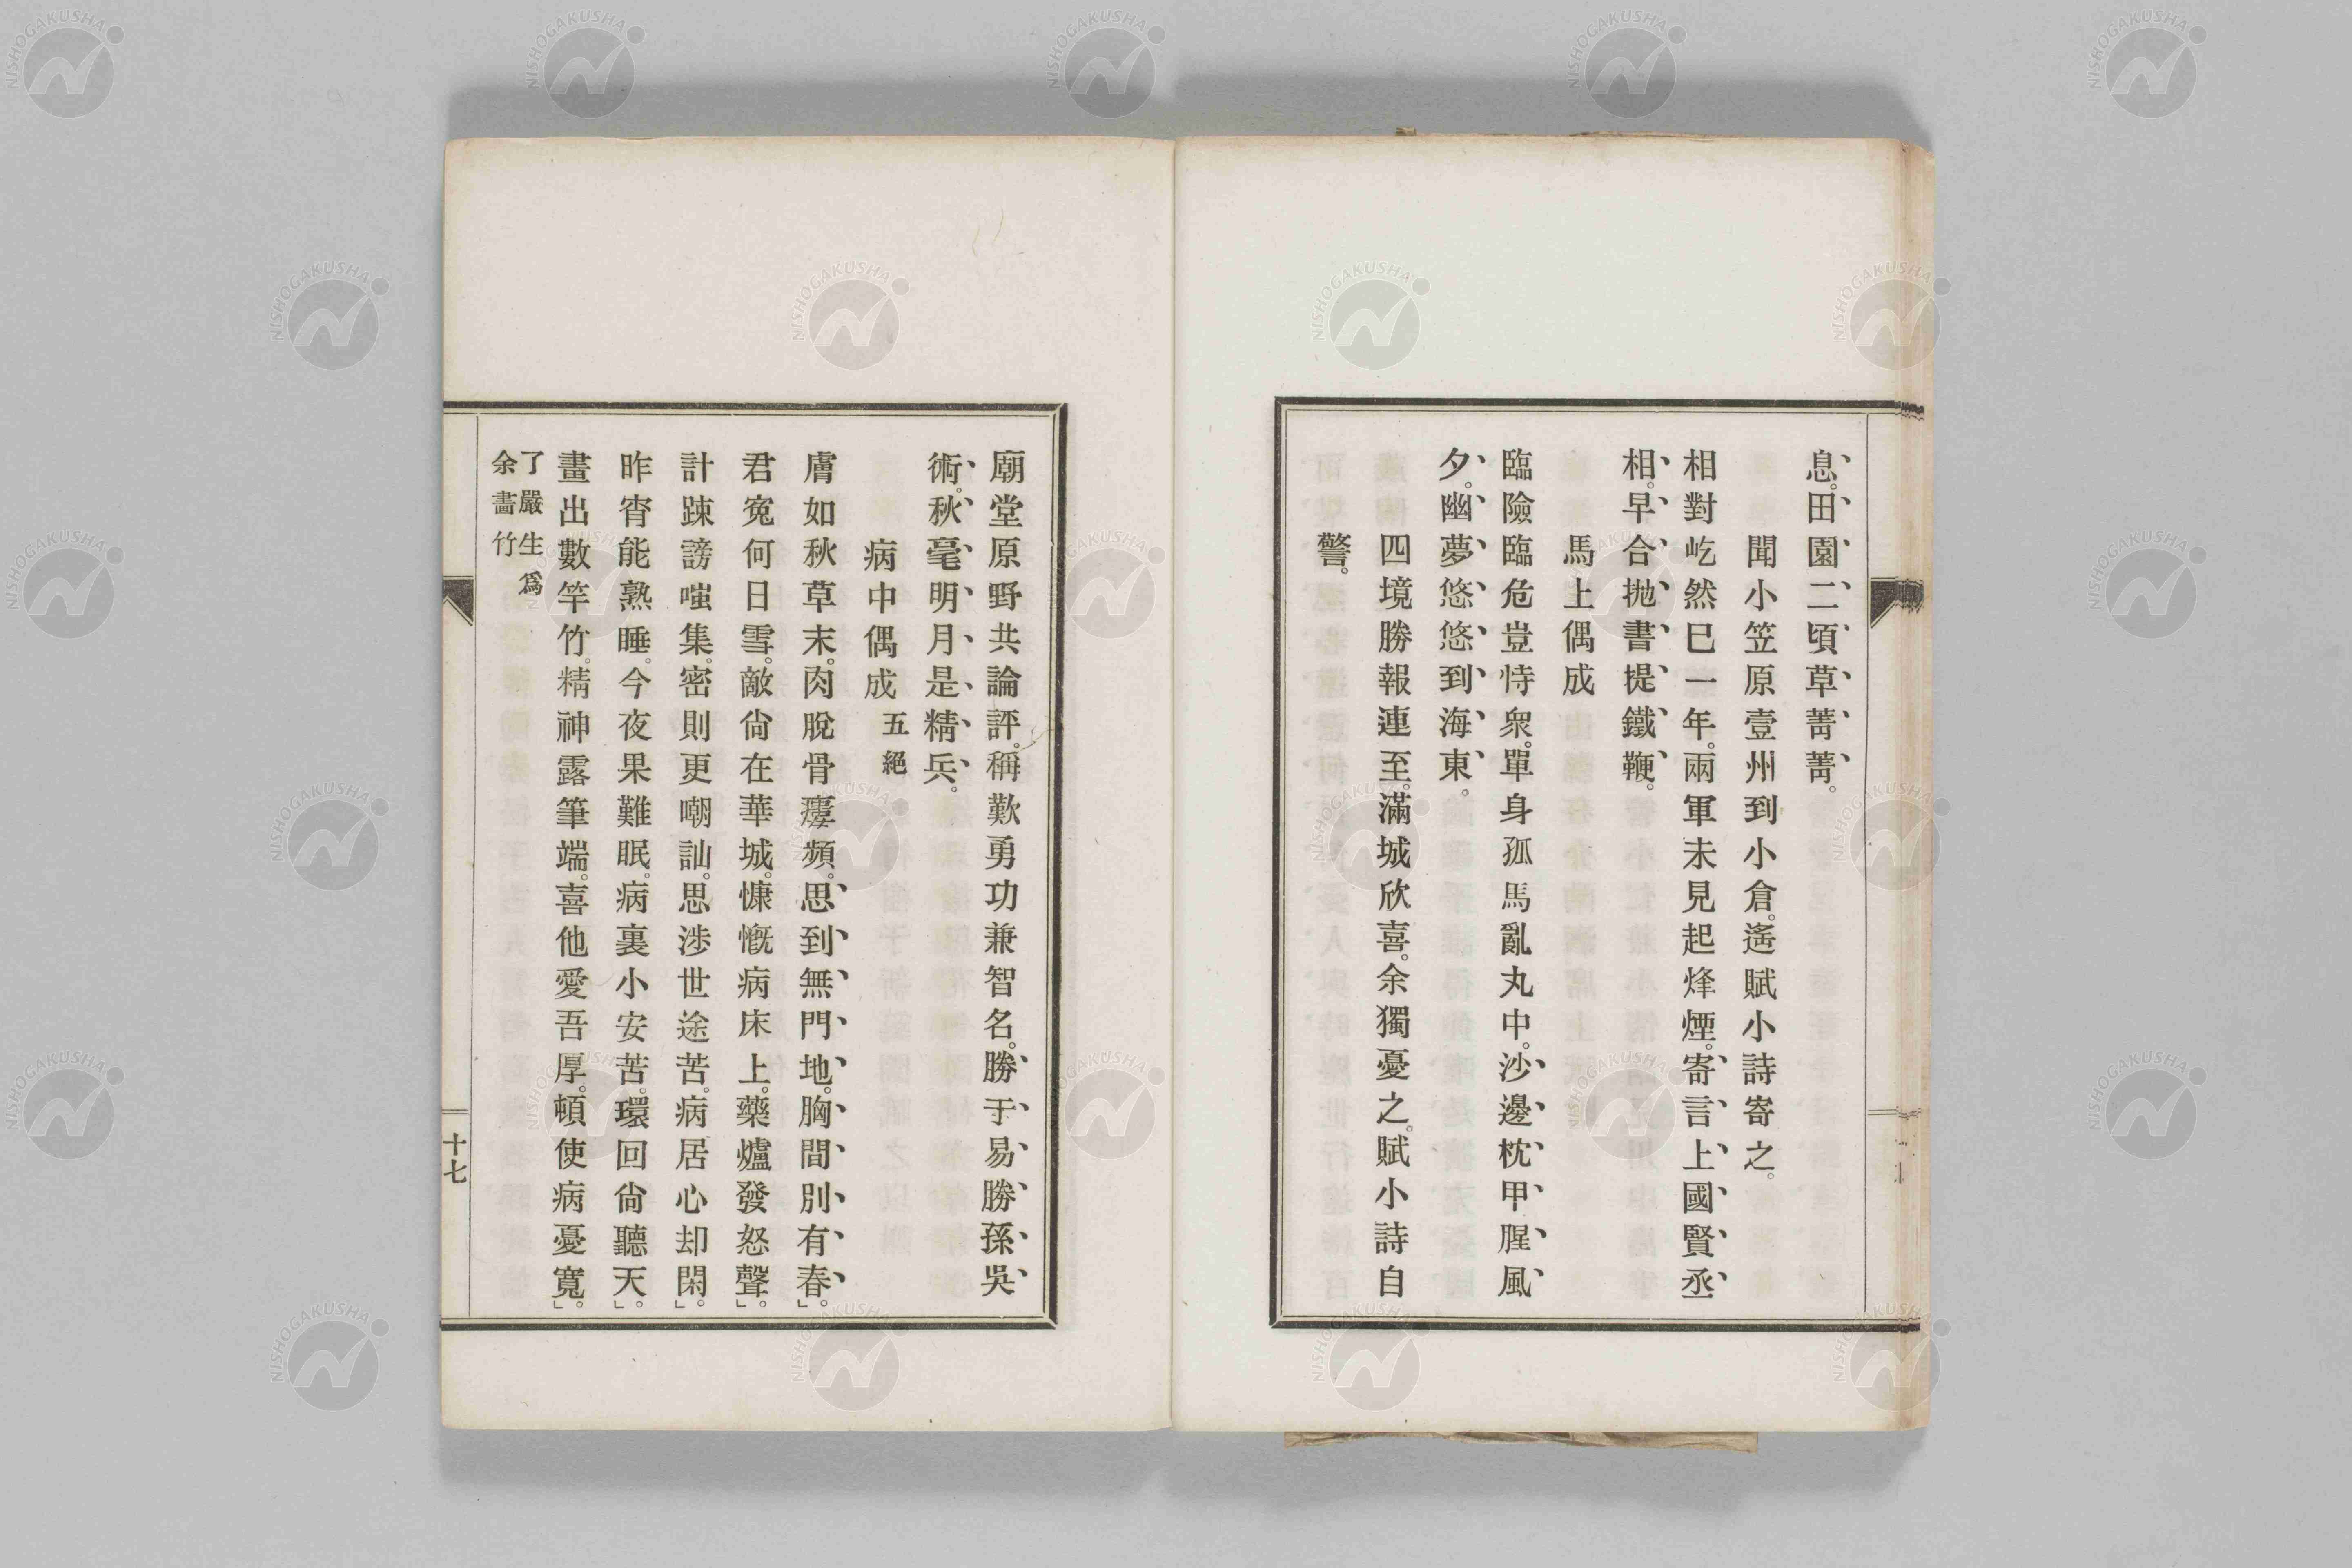 息。田園二頃草菁菁。
聞小笠原壹州到小倉。遙賦小詩寄之。
相對屹然已一年。兩軍未見起烽煙。寄言上國賢丞
相。早合拋書提鐵鞭。
馬上偶成
臨險臨危豈恃衆。單身孤馬亂丸中。沙邊枕甲腥風
夕。幽夢悠悠到海東。
四境勝報連至。滿城欣喜。余獨憂之。賦小詩自
警。
廟堂原野共論評。稱歎勇功兼智名。勝于易勝孫吳
術。秋毫明月是精兵。
病中偶成 五絕
膚如秋草末。肉脫骨瘻頻。思到無門地。胸間別有春。」
君冤何日雪。敵尙在華城。慷慨病床上。藥爐發怒聲。」
計踈謗嗤集。密則更嘲訕。思涉世途苦。病居心却閑。」
昨宵能熟睡。今夜果難眠。病裏小安苦。環回尙聽天。」
畫出數竿竹。精神露筆端。喜他愛吾厚。頓使病憂寬。」
了嚴生爲
余畵竹
十七
NISHOGAKUSHA